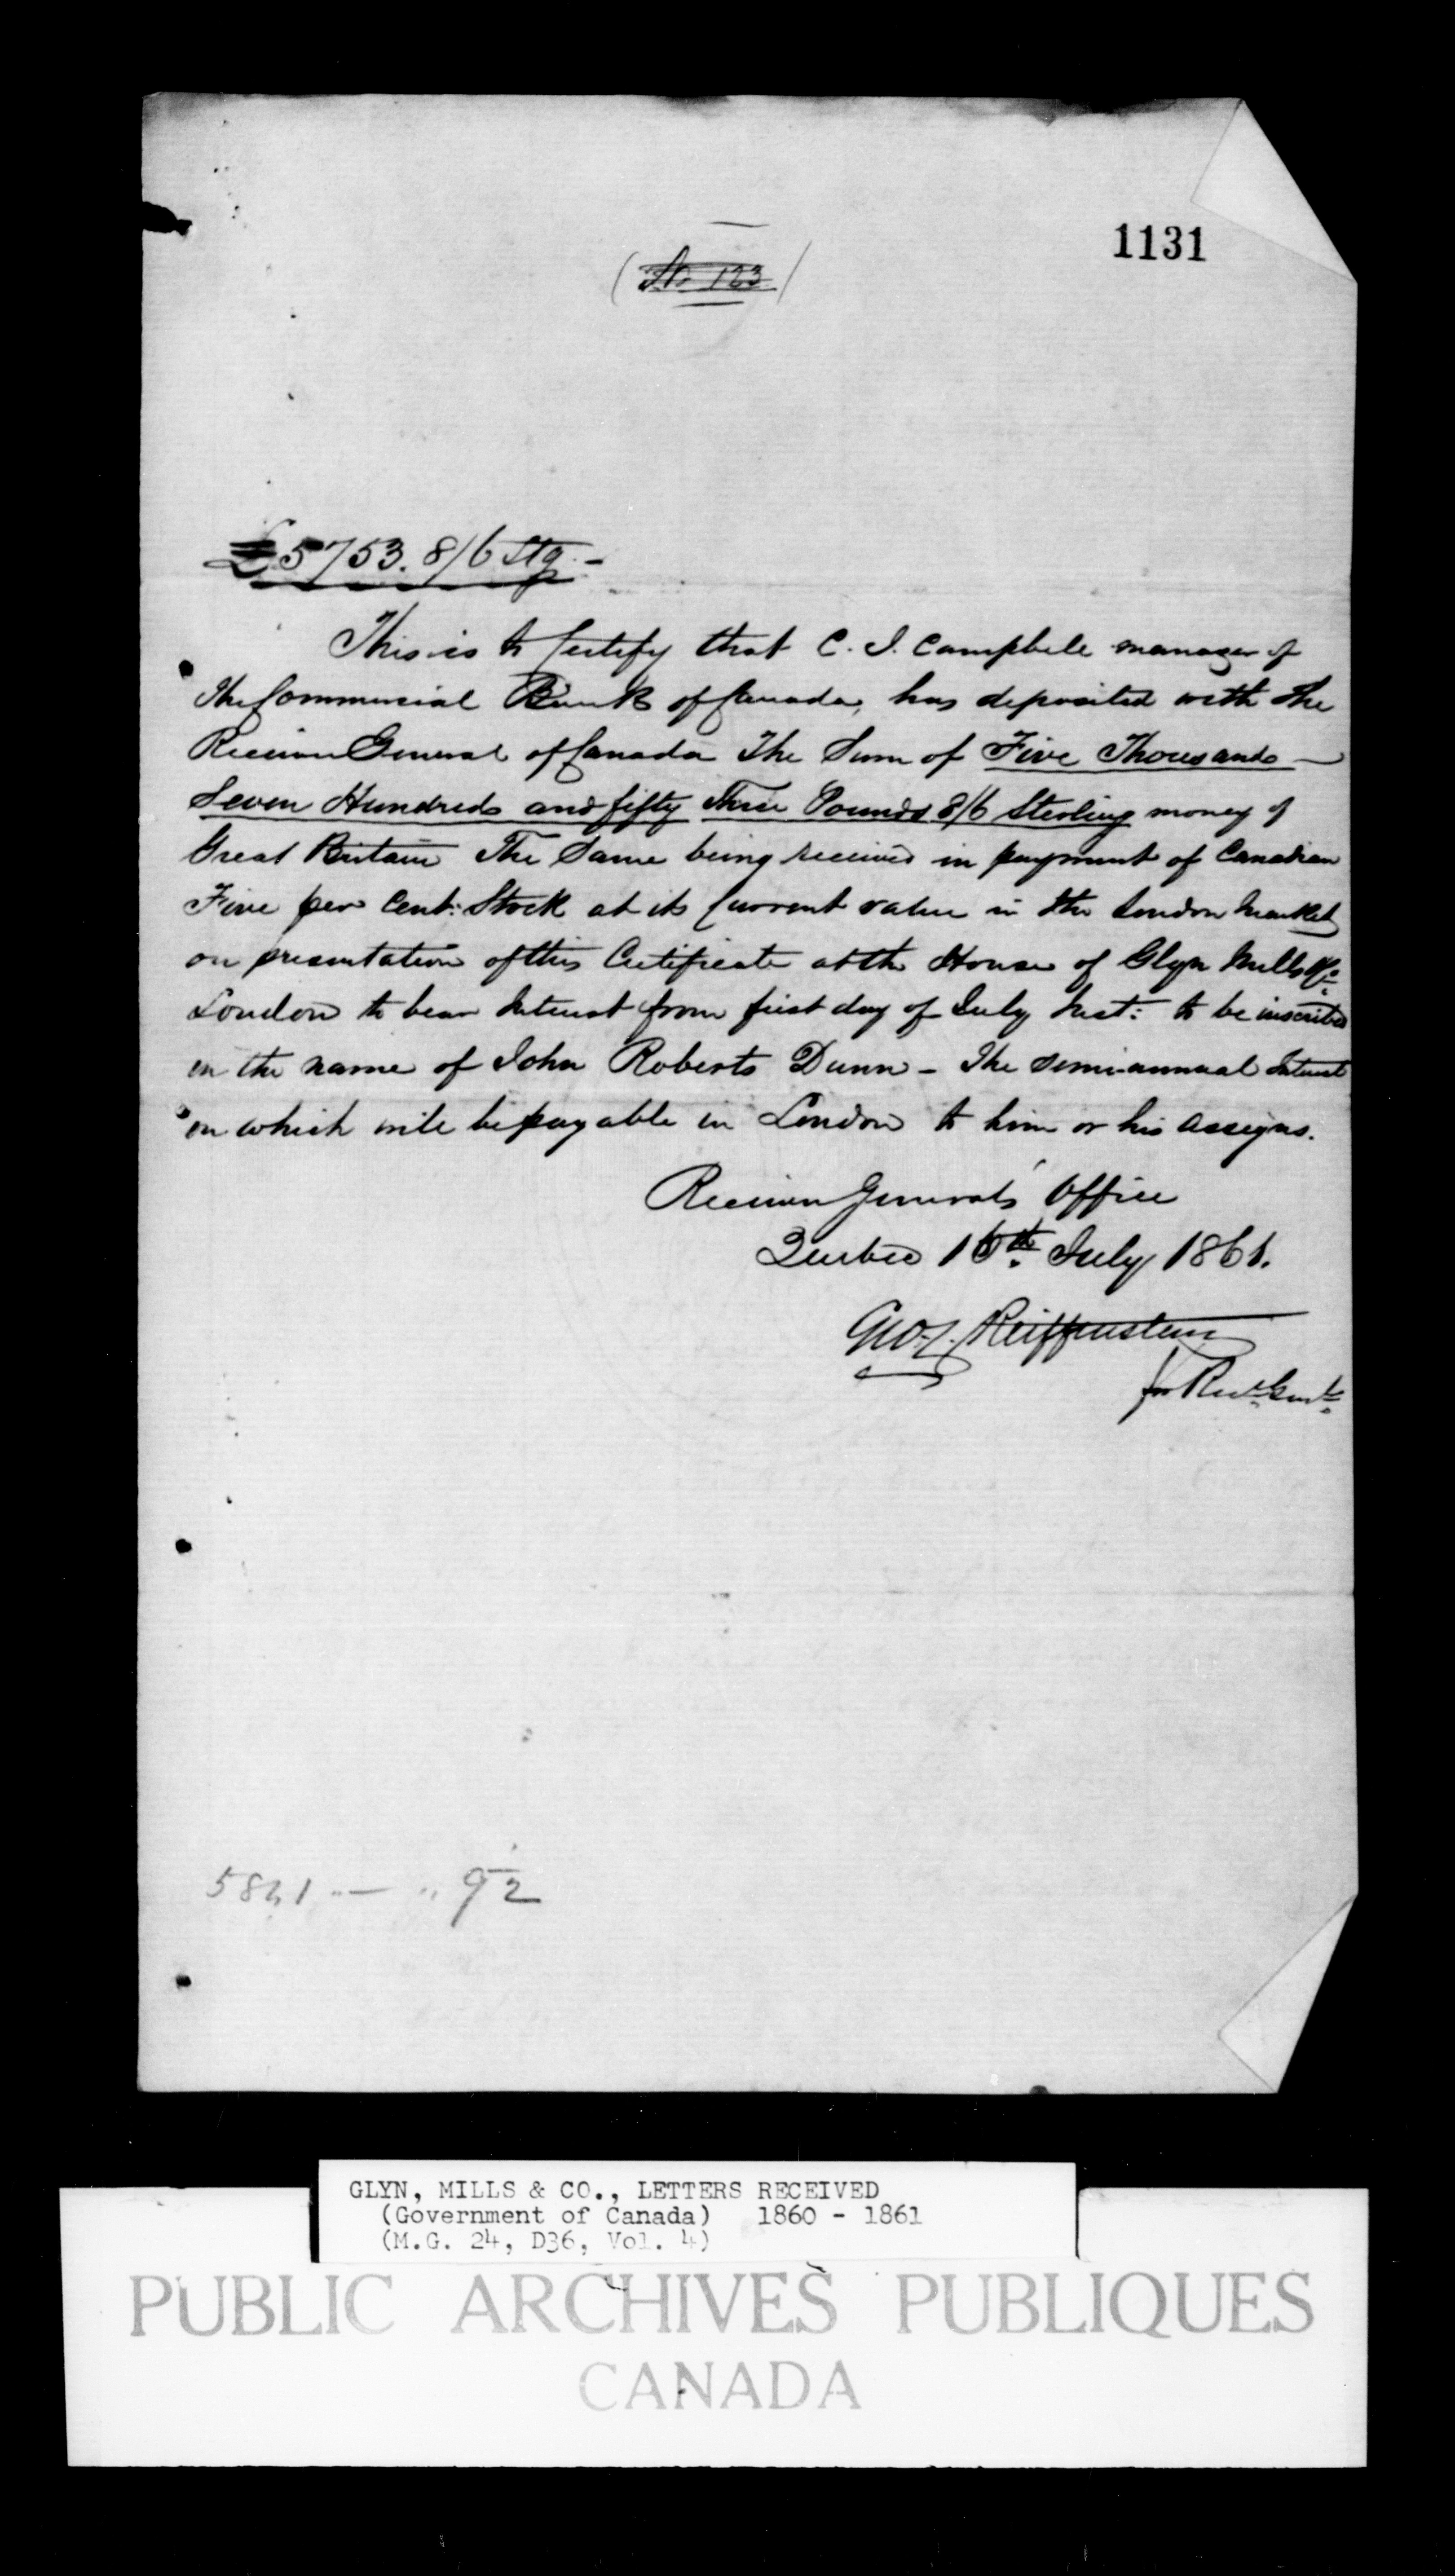 1131
(No 123)
£5753. 8/6 Stg. -
This is to Certify that C. J. Campbell manager of
The Commercial Bank of Canada, has deposited with the
Receiver General of Canada The Sum of Five Thousand —
Seven Hundred and fifty three Pounds 8/6 Sterling money of
Great Britain The Same being received in payment of Canadian
Five per Cent: Stock at its Current value in the London Market
on presentation of this Certificate at the House of Glyn Mills & Co.
London to bear Interest from first day of July Inst: to be inscribed
in the name of John Roberts Dunn - The semi-annual Interest
on which will be payable in London to him or his assigns.
Receiver General's Office
Quebec 16th. July 1861.
Geo. Reiffenstein
for Recr. Genl.
5841 " — " 92
GLYN, MILLS & CO., LETTERS RECEIVED
(Government of Canada) 1860 - 1861
(M.G. 24, D36, Vol. 4)
PUBLIC ARCHIVES PUBLIQUES
CANADA